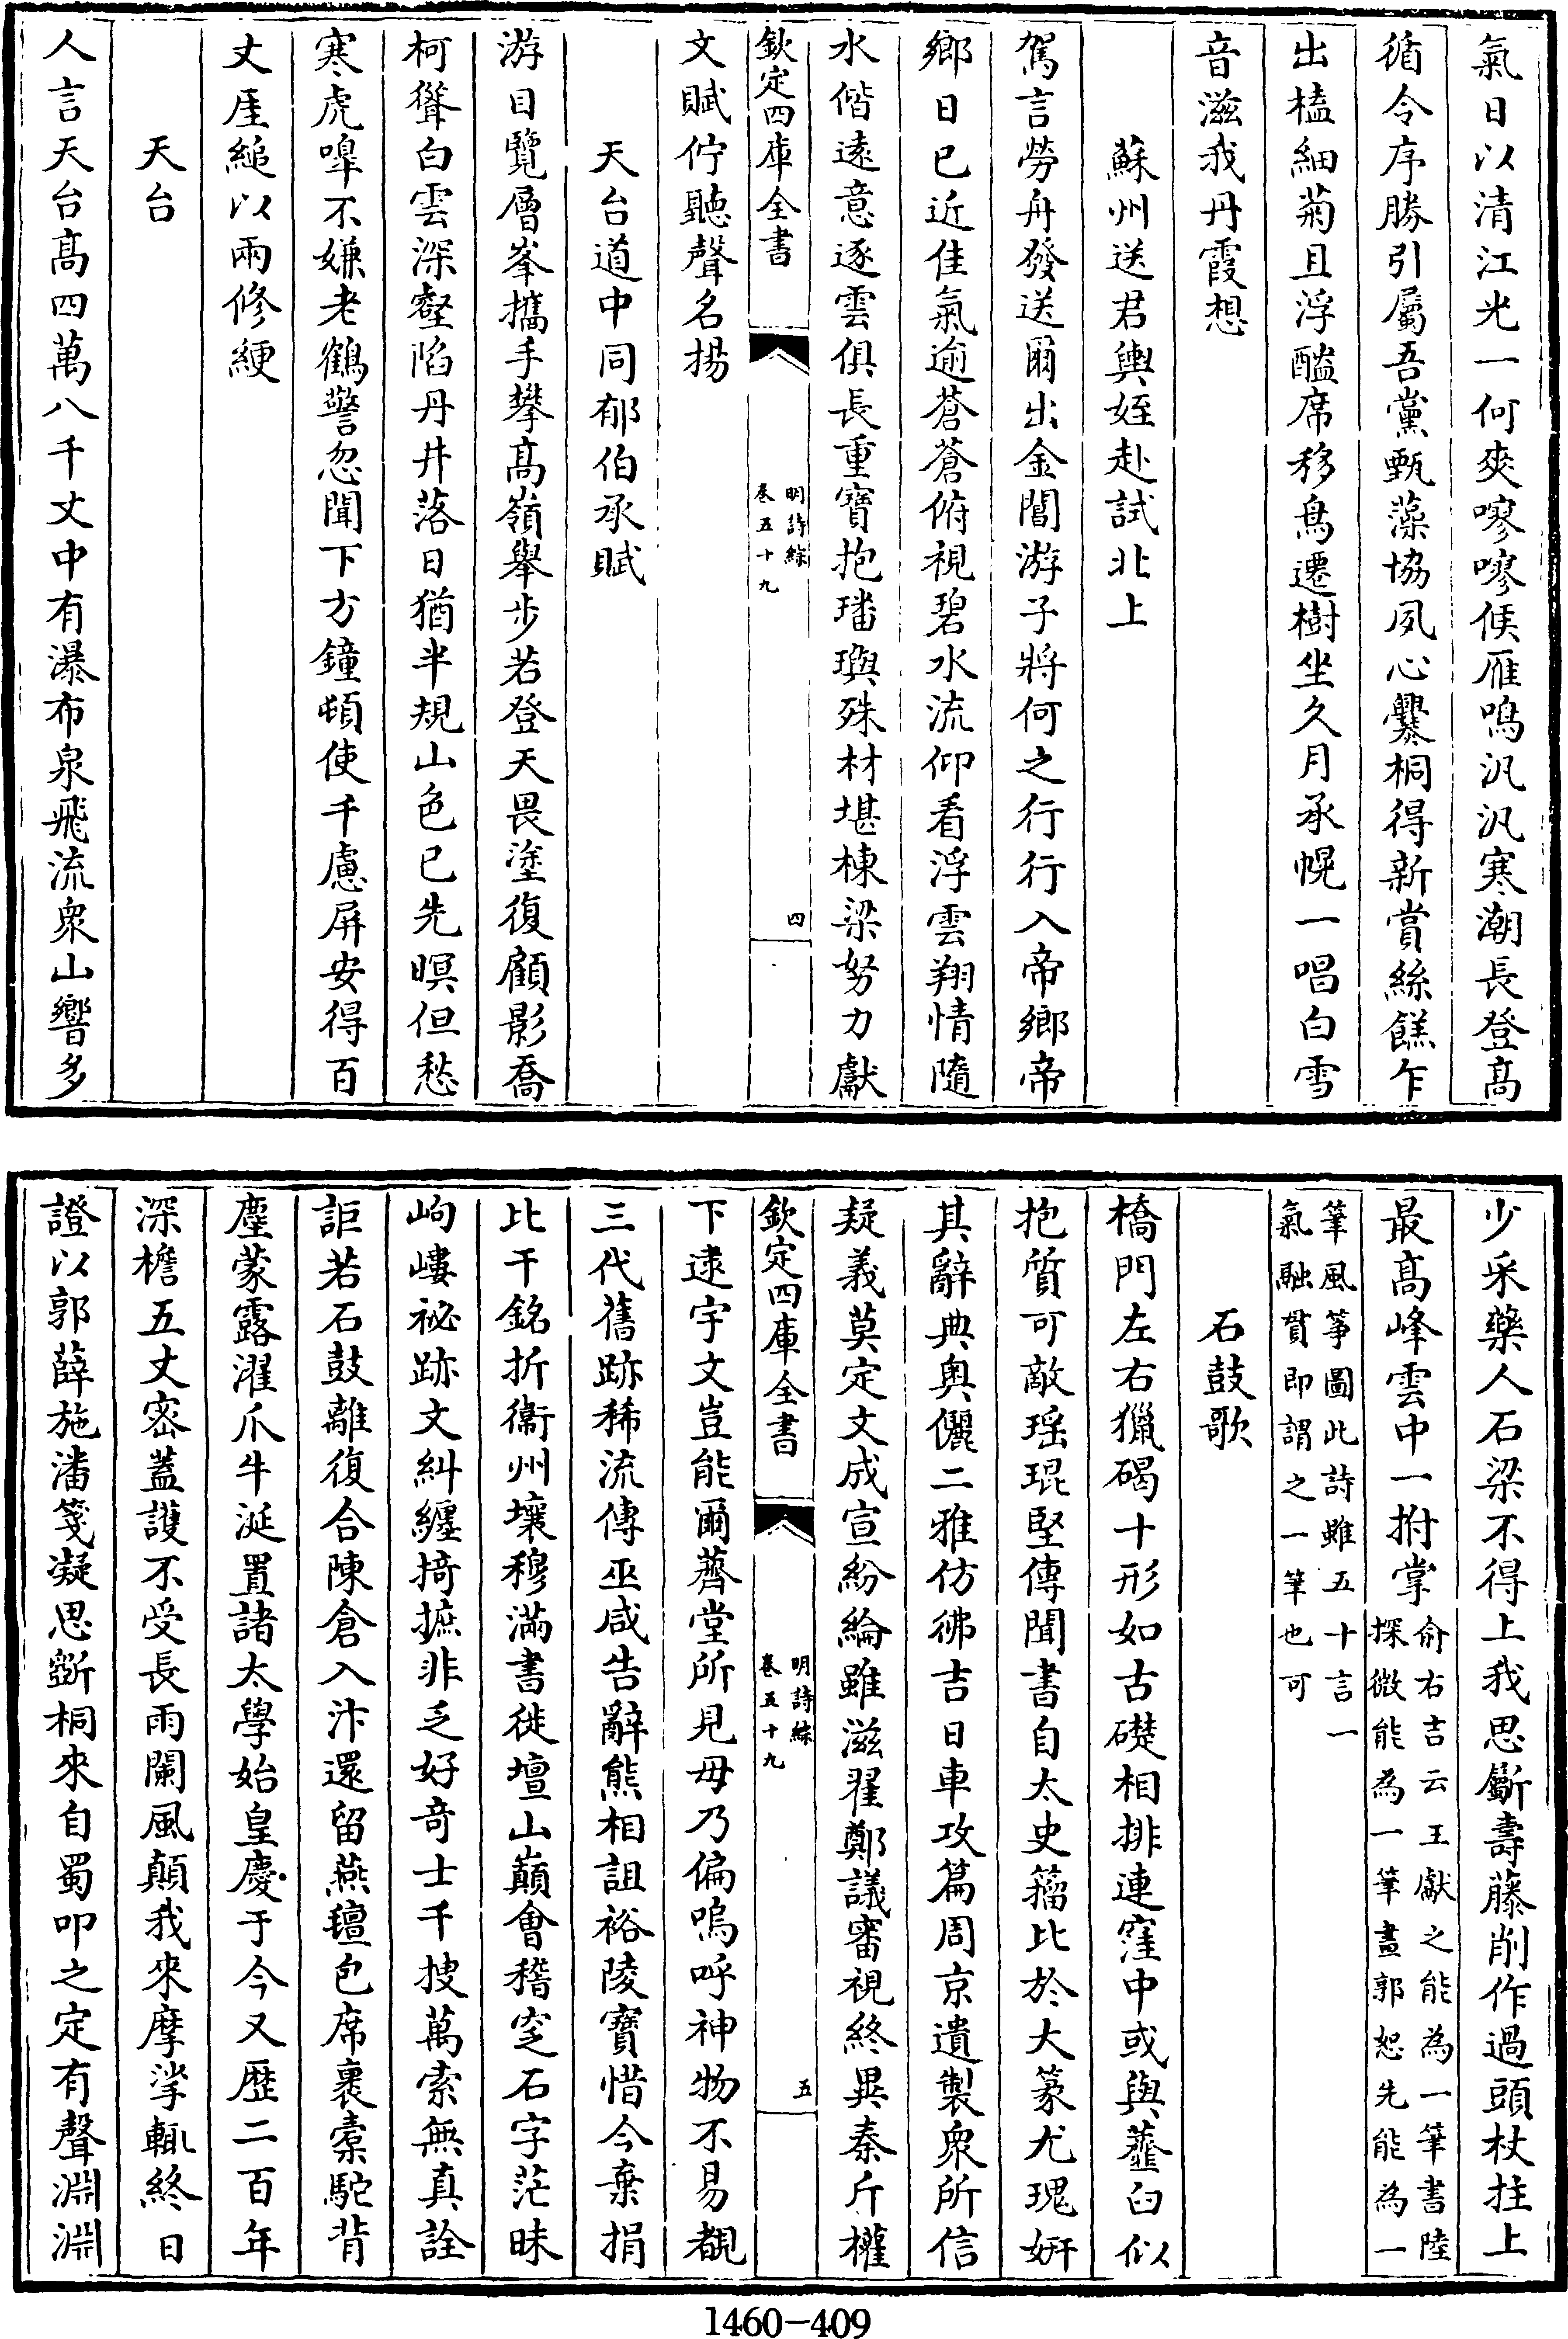 氣日以清江光一何爽嘐嘐候雁鳴汎汎寒潮長登高
循令序勝引屬吾黨甄藻協夙心爨桐得新賞絲餻乍
出榼細菊且浮醠席移鳥遷樹坐久月承幌一唱白雪
音滋我丹霞想
蘇州送君輿姪赴試北上
駕言勞舟發送爾出金閶游子將何之行行入帝鄉帝
鄉日已近佳氣逾蒼蒼俯視碧水流仰看浮雲翔情隨
水偕遠意逐雲俱長重寶抱璠璵殊材堪棟梁努力獻
欽定四庫全書
明詩綜
卷五十九
四
文賦佇聽聲名揚
天台道中同郁伯承賦
游目覽層峯攜手攀高嶺舉步若登天畏塗復顧影喬
柯聳白雲深壑陷丹井落日猶半規山色已先暝但愁
寒虎嘷不嫌老鶴警忽聞下方鐘頓使千慮屏安得百
丈厓縋以兩修綆
天台
人言天台高四萬八千丈中有瀑布泉飛流衆山響多
少采藥人石梁不得上我思斸壽藤削作過頭杖拄上
最高峰雲中一拊掌
俞右吉云王獻之能為一筆書陸
探微能為一筆畫郭恕先能為一
筆風箏圖此詩雖五十言一
氣融貫即謂之一筆也可
石鼓歌
橋門左右獵碣十形如古礎相排連窪中或與虀臼似
抱質可敵瑶琨堅傳聞書自太史籀比於大篆尤瑰妍
其辭典奥儷二雅仿彿吉日車攻篇周京遺製衆所信
疑義莫定文成宣紛綸雖滋翟鄭議審視終異秦斤權
欽定四庫全書
明詩綜
卷五十九
五
下逮宇文豈能爾薺堂所見毋乃偏嗚呼神物不易覩
三代舊跡稀流傳巫咸告辭熊相詛裕陵寶惜今棄捐
比干銘折衞州壤穆滿書徙壇山巔會稽窆石字茫昧
岣嶁祕跡文糾纏掎摭非乏好奇士千捜萬索無真詮
詎若石鼓離復合陳倉入汴還留燕氊包席裹橐駝背
塵蒙露濯爪牛涎置諸太學始皇慶于今又歴二百年
深檐五丈宻蓋護不受長雨闌風顛我來摩挲輒終日
證以郭薛施潘箋凝思斲桐來自蜀叩之定有聲淵淵
1460-409